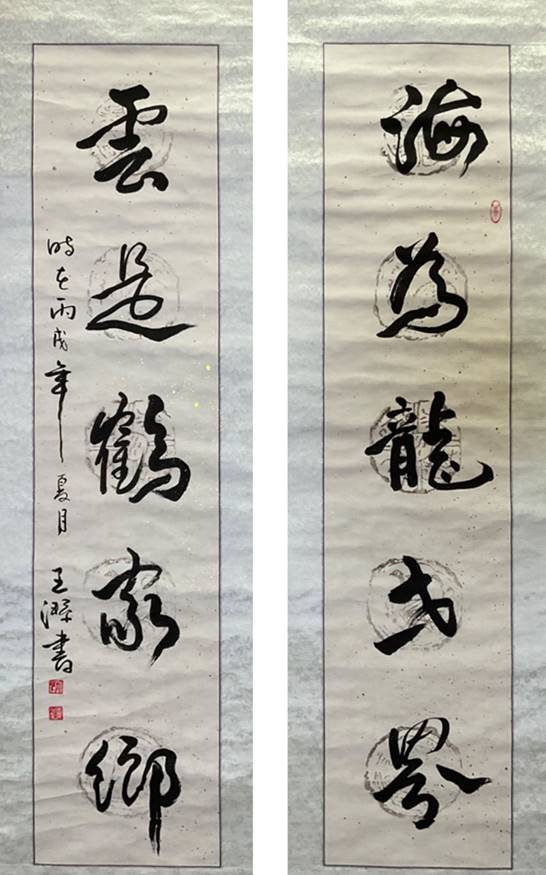 海为龍世界
雲是鶴家鄉
時在丙戌年夏月 王 書